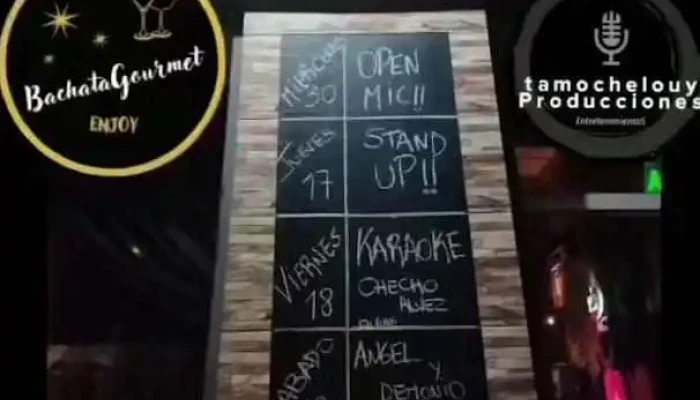 BachataGourmet
ENJOY
tamochelouy
Producciones
Entretenimientos
MIÉRCOLES
30
OPEN
MIC!!
JUEVES
17
STAND
UP!!
VIERNES
18
KARAOKE
CHECHO
ALVEZ
EN VIVO
SABADO
ANGEL
Y
DEMONIO